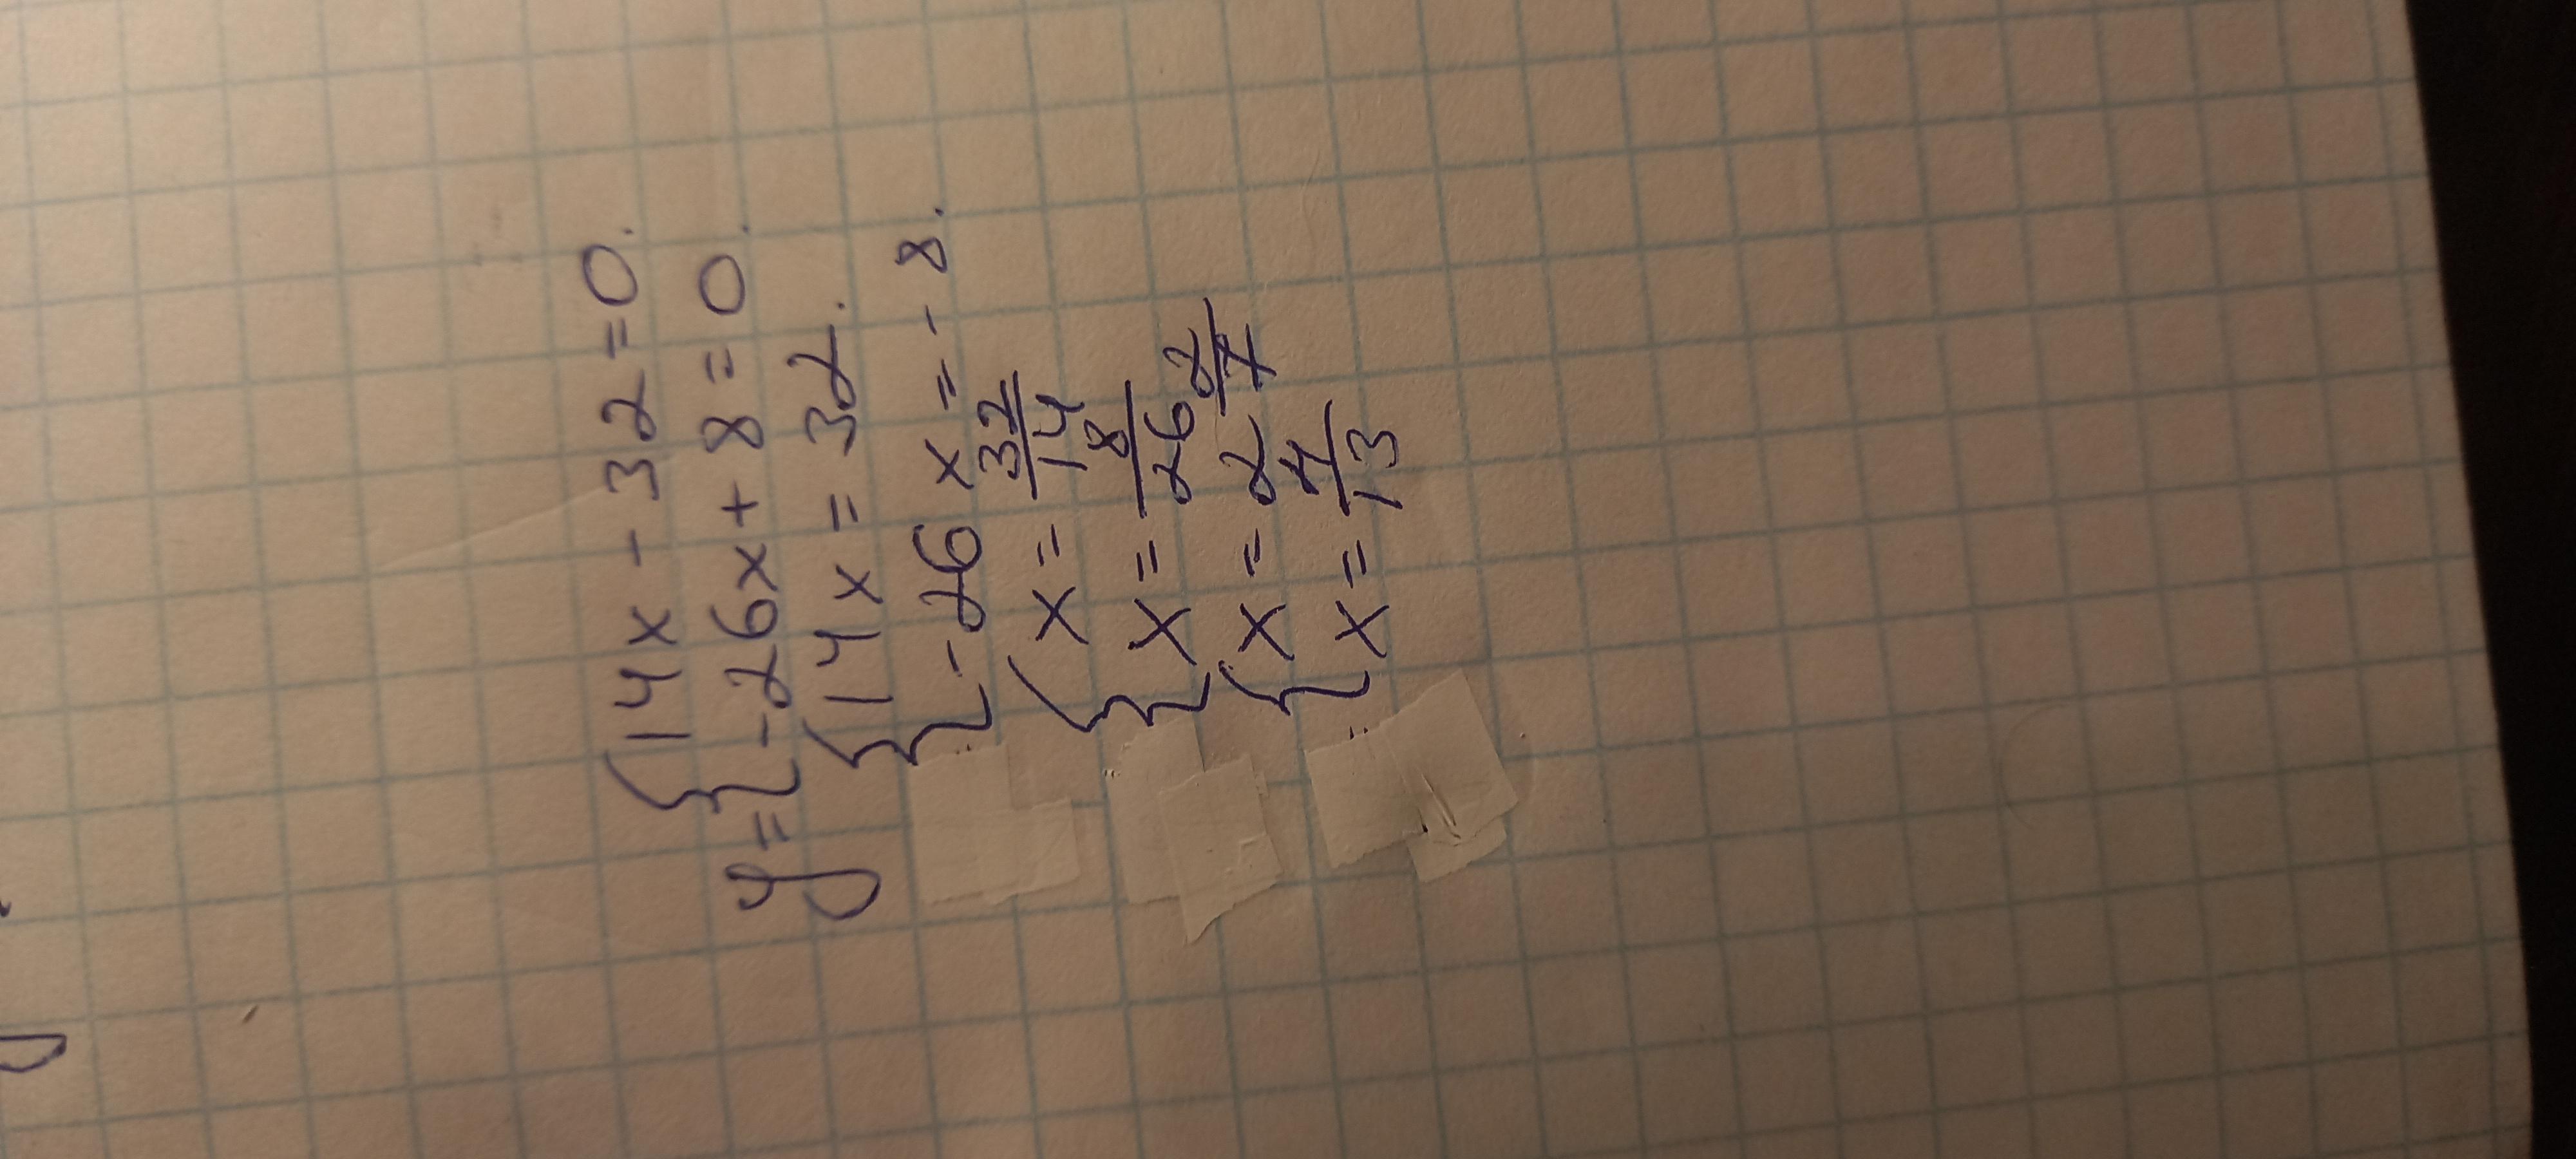 14x - 32 = 0.
y = { -26x + 8 = 0.
{ 14x = 32.
-26x = - 8.
{ x = 32/14
x = 8/26
{ x = 2 2/7
x = 4/13